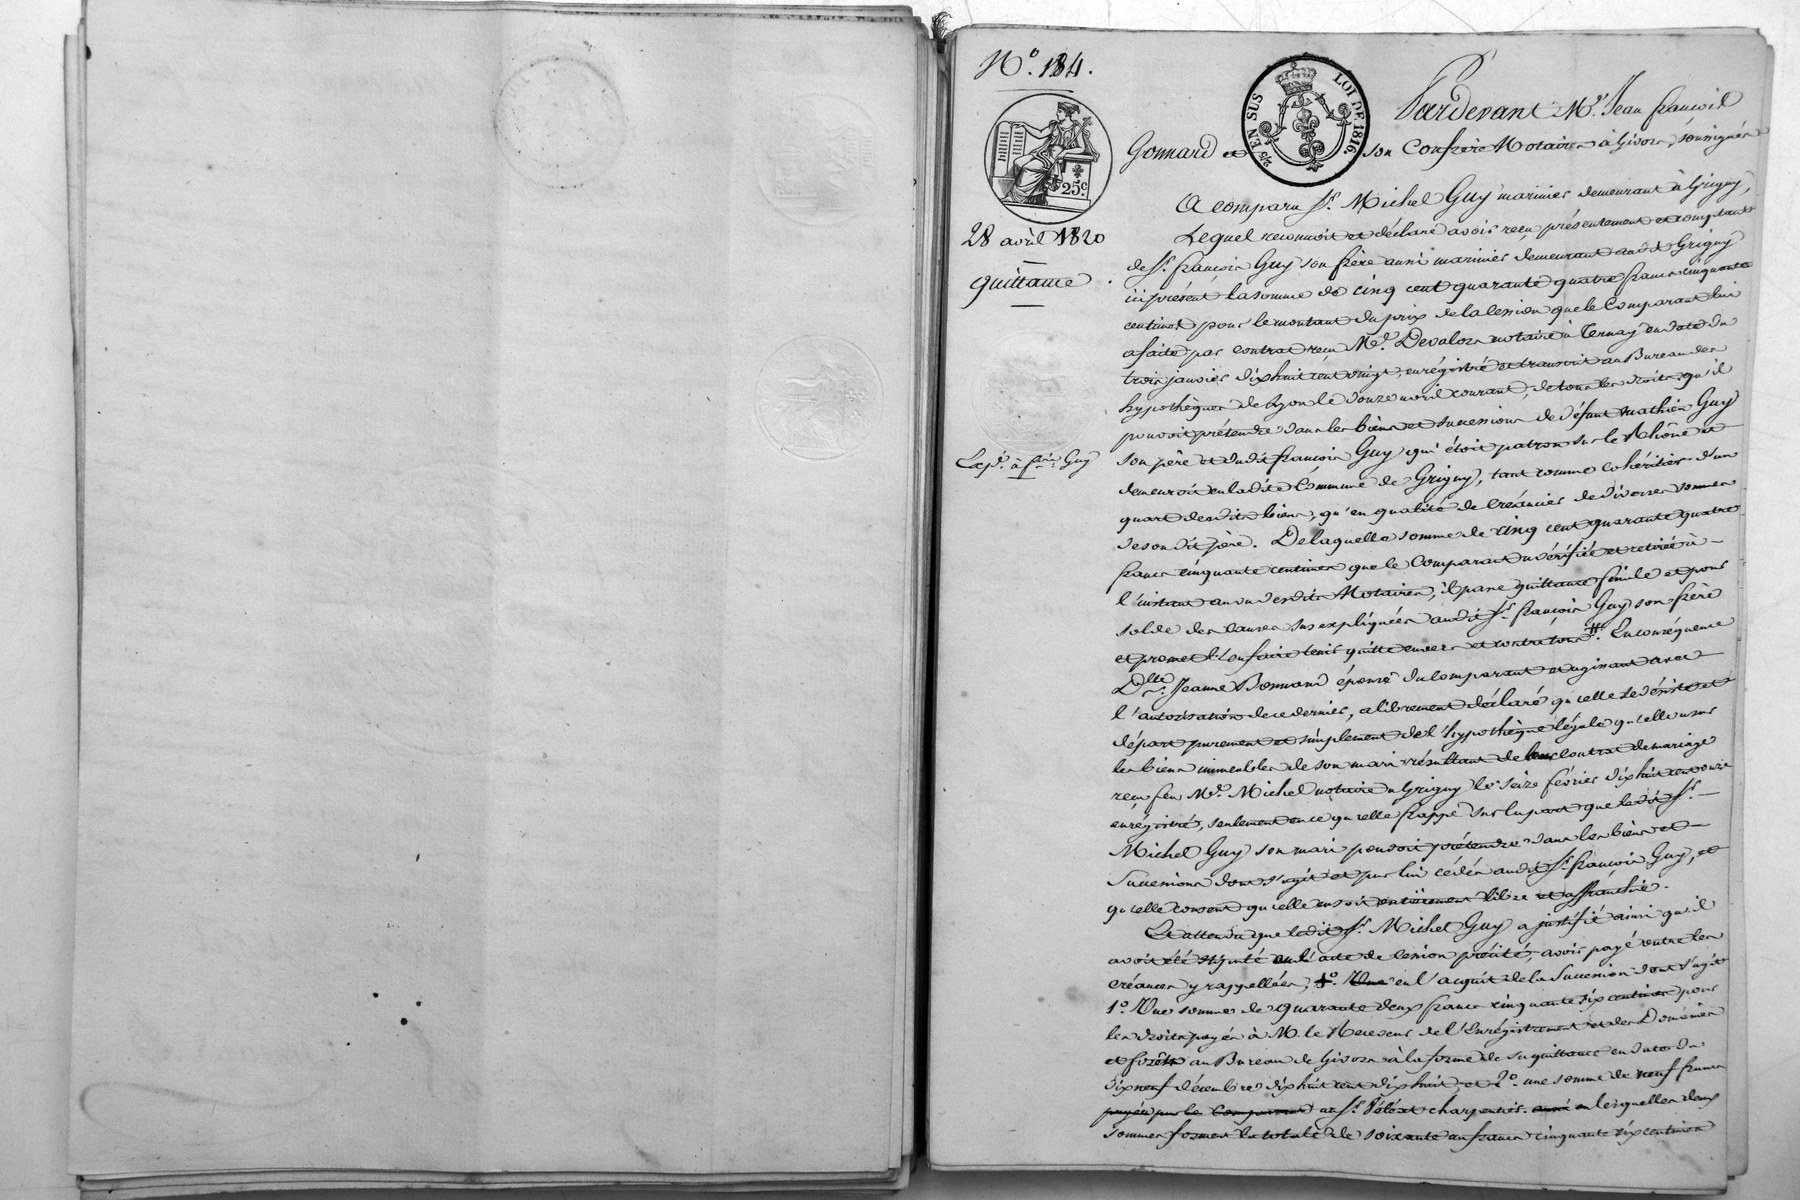 N.º 184.
EN SUS
LOI DE 1816.
25.c
28 avril 1820
quittance
Exp.on à f.çois Guy
Pardevant M.e Jean françois
Gonnard et son Confrère Notaires à Givors, soussignés
A comparu S.r Michel Guy marinier demeurant à Grigny,
Lequel reconnoit et déclare avoir reçu présentement et comptant
de S.r françois Guy son frère aussi marinier demeurant audit Grigny
ici présent la somme de cinq cent quarante quatre francs cinquante
centimes pour le montant du prix de la cession que le Comparant lui
a faite par contrat reçu M.e Devalors notaire à Ternay en date du
trois janvier dix huit cent vingt, enrégistré et transcrit au Bureau des
hypothèques de Lyon le douze avril courant, de tous les droits qu'il
pouvoit prétendre dans les biens et successions de défunt mathieu Guy
son père et dudit françois Guy qui étoit patron sur le Rhône et
demeuroit en ladite Commune de Grigny, tant comme cohéritier d'un
quart desdits biens, qu'en qualité de Créancier de diverses sommes
de son dit père. De laquelle somme de cinq cent quarante quatre
francs cinquante centimes que le Comparant a vérifiée et retirée à
l'instant au vu desdits Notaires, il passe quittance finale et pour
solde des causes sus expliquées audit S.r françois Guy son frère
et promet l'en faire tenir quitte envers et contre tous #. En conséquence
D.lle Jeanne Bonnand épouse du comparant et agissant avec
l'autorisation de ce dernier, a librement déclaré qu'elle se désiste et
départ purement et simplement de l'hypothèque légale qu'elle a sur
les biens immeubles de son mari résultant de leur contrat de mariage
reçu feu M.e Michel notaire à Grigny le seize février dix huit cent onze
enrégistré, seulement en ce qu'elle frappe sur la part que ledit S.r
Michel Guy son mari pouvoit prétendre dans les biens et
Successions dont s'agit et par lui cédés audit S.r françois Guy, et
qu'elle consent qu'elle en soit entièrement libre et affranchie.
Et attendu que ledit S.r Michel Guy a justifié ainsi qu'il
avoit été stipulé en l'acte de cession précité, avoir payé outre les
créances y rappellées, 1.º Une en l'acquit de la Succession dont s'agit
1.º Une somme de quarante deux francs cinquante six centimes pour
les droits payés à M. le Receveur de l'Enrégistrement et des Domaines
et forêts au Bureau de Givors à la forme de sa quittance en date du
dix neuf décembre dix huit cent dix huit, et 2.º une somme de neuf francs
payée par le Comparant au S.r charpentier lesquelles deux
sommes forment la totale de cinquante un francs cinquante six centimes